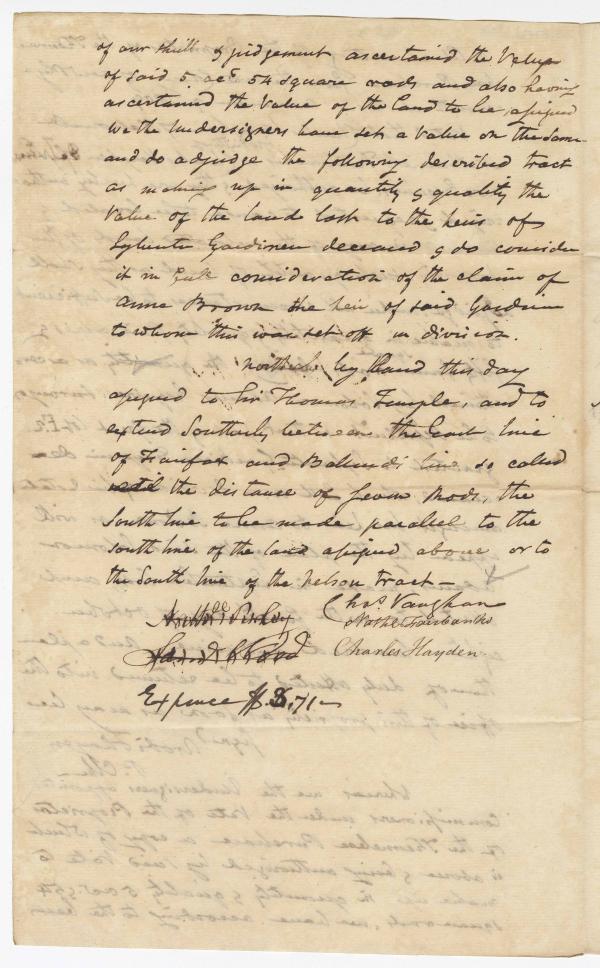 of our skill & judgement ascertained the Value
of said 5 acs 54 square rods and also having
ascertained the Value of the land to be assigned
we the Undersigners have set a value on the same
and do adjudge the following described tract
as making up in quantity & quality the
Value of the land lost to the heirs of
Sylvester Gardiner deceased & do consider
it in full consideration of the claim of
Anne Brown the heir of said Gardiner
to whom this was set off in division.
by land this day
assigned to Sir Thomas Temple, and to
extend Southerly between the East line
of Fairfax and line so called
the distance of seven Rods, the
South line to be made parallel to the
south line of the land assigned above or to
the South line of the Nelson tract —
Chas. Vaughan
Nathl Fairbanks
Charles Hayden
Expence